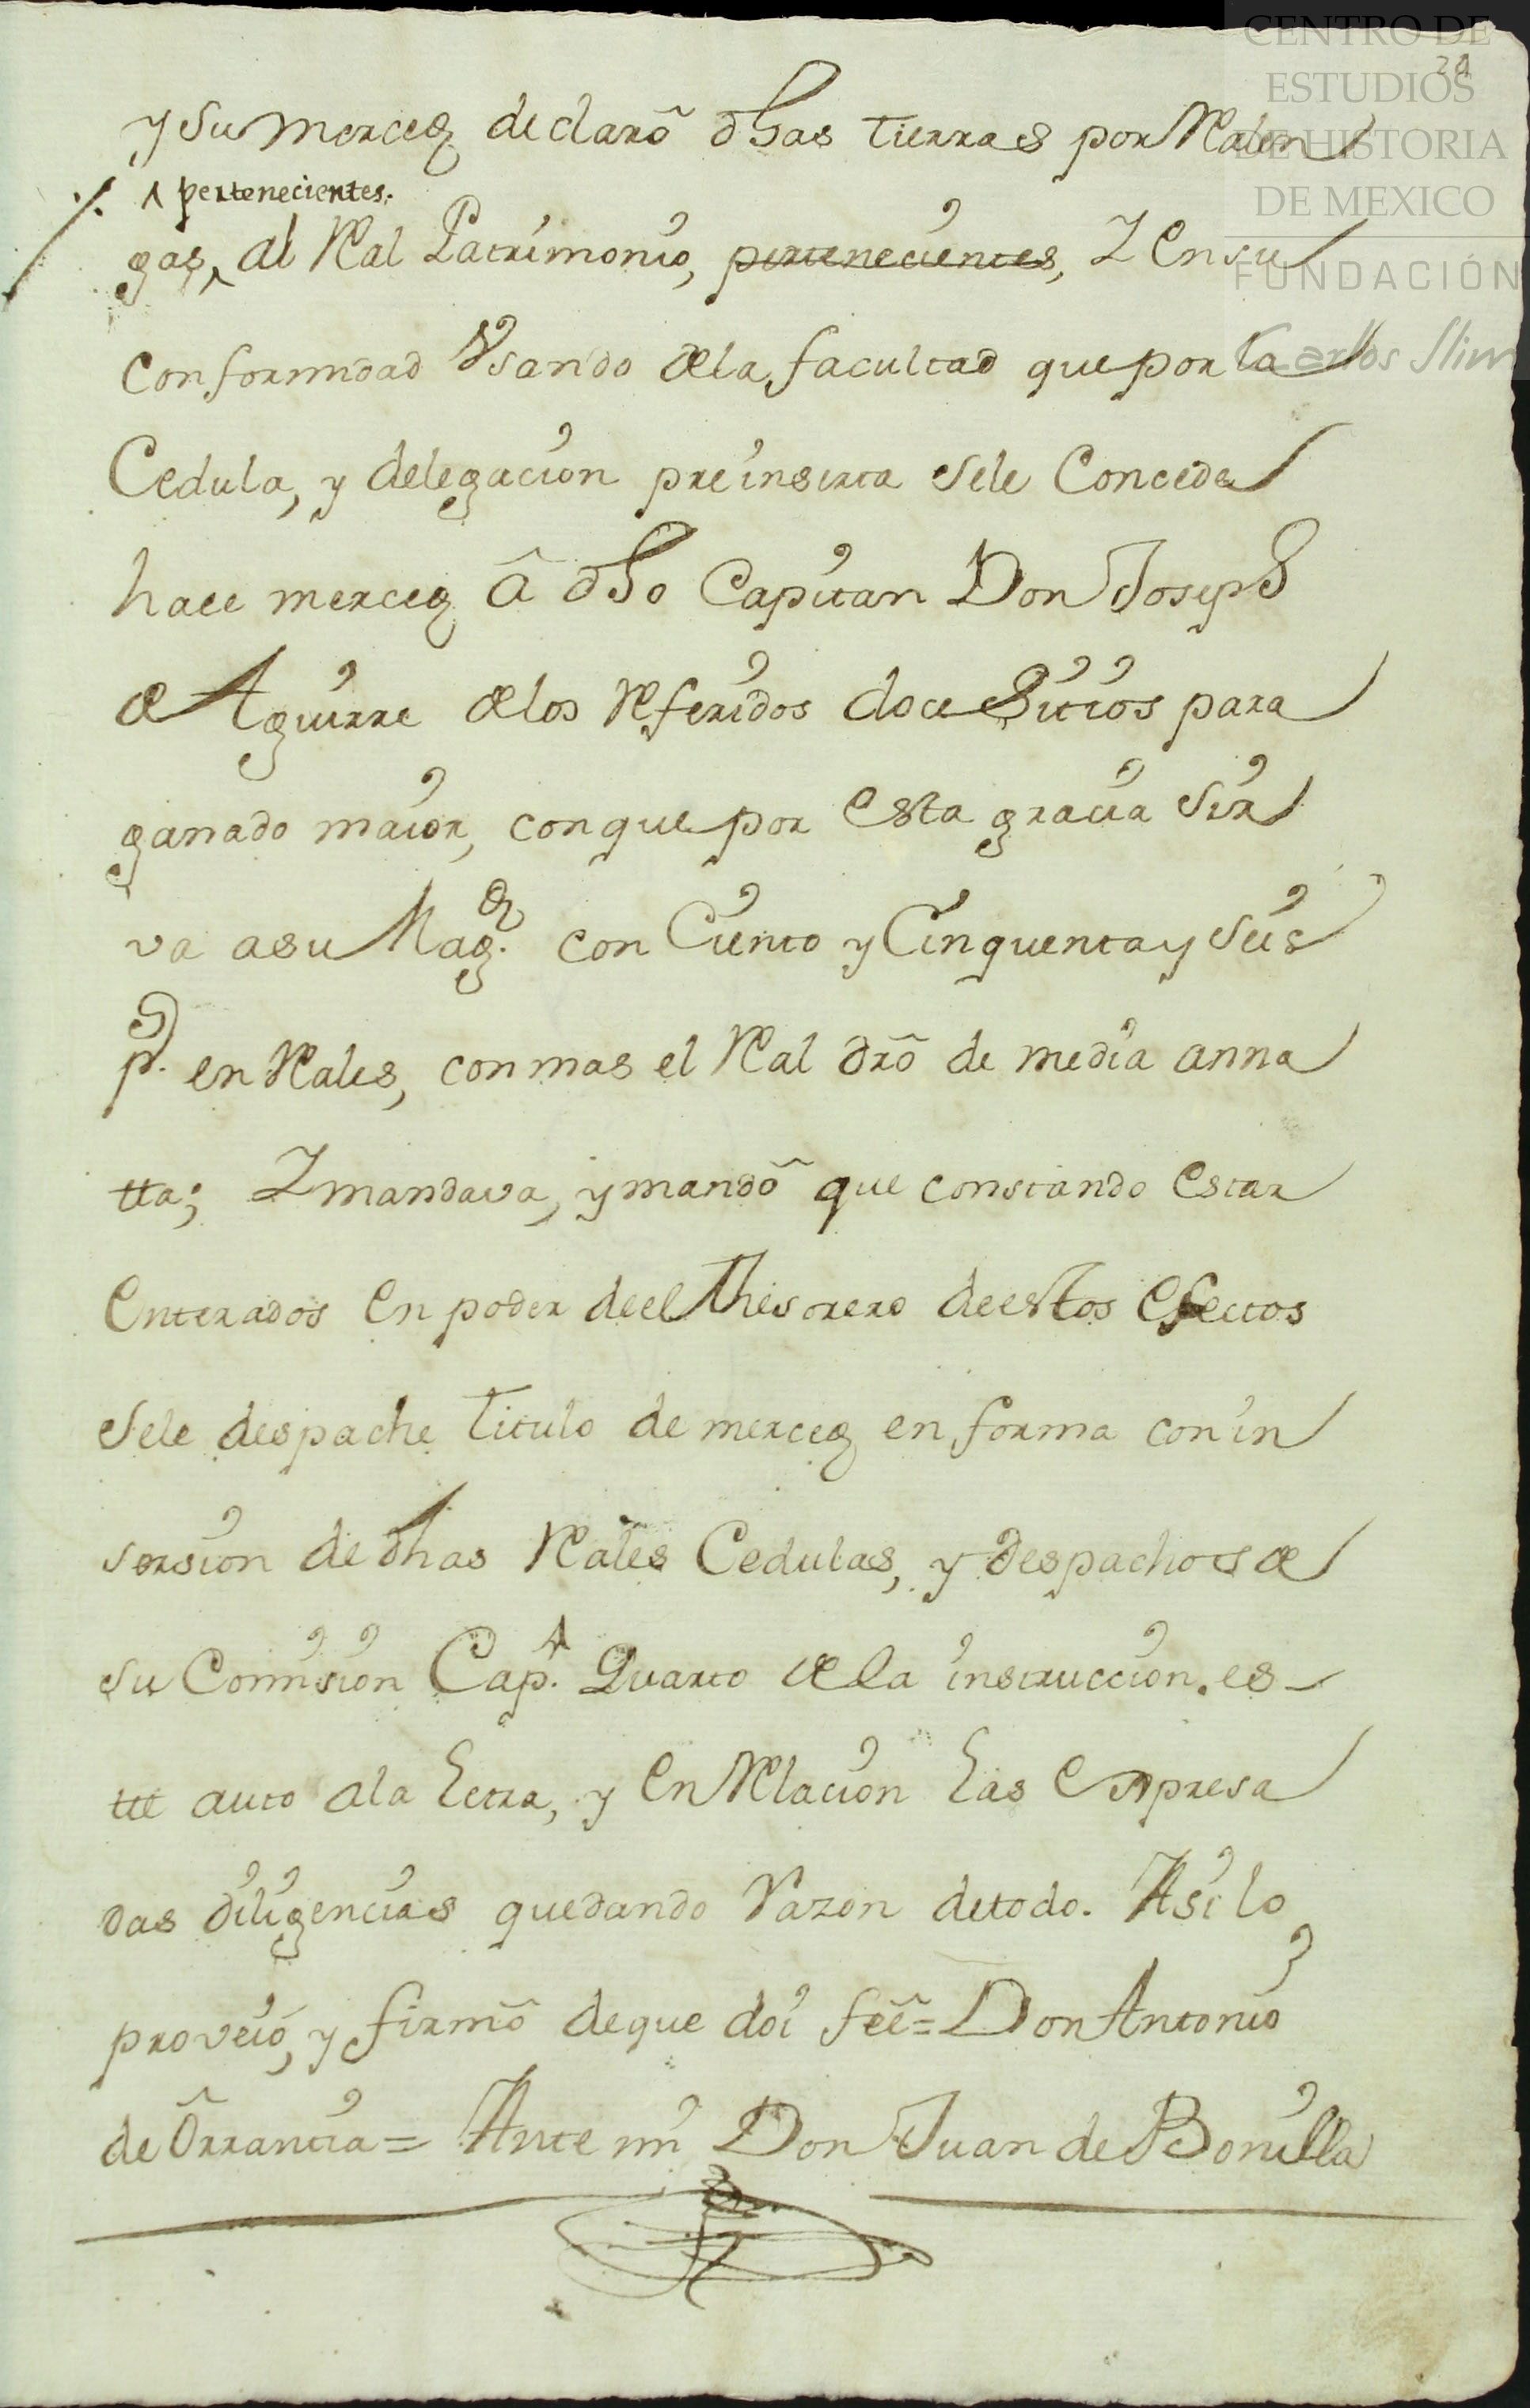 CENTRO DE
ESTUDIOS
DE HISTORIA
DE MEXICO
FUNDACIÓN
Carlos Slim
y su merced declarô dhas tierras por Ralen
pertenecientes.
gas, al Ral Patrimonio, pertenecientes, Y En su
conformidad Vsando de la facultad que por la
Cedula, y delegacion preinserta se le Concede
hace merced â dho Capitan Don Joseph
de Aguirre de los Referidos doce Sitios para
ganado maior, con que por esta gracia Sir
va a su Magd. con Ciento y Cinquenta y Seis
ps. en Rales, con mas el Ral drô de media anna
tta; Y mandava, y mandô que constando estar
Enterados en poder de el Thesorero de estos efectos
se le despache titulo de merced en forma con in
sersion de dhas Rales Cedulas, y despachos de
su Comision Capo. Quarto de la instruccion. es-
tte auto a la Letra, y en Relacion Las Expresa
das diligencias quedando Razon de todo. Asi lo
proveió, y firmô de que doi feê = Don Antonio
de Ôrrantia = Ante mi Don Juan de Bonilla